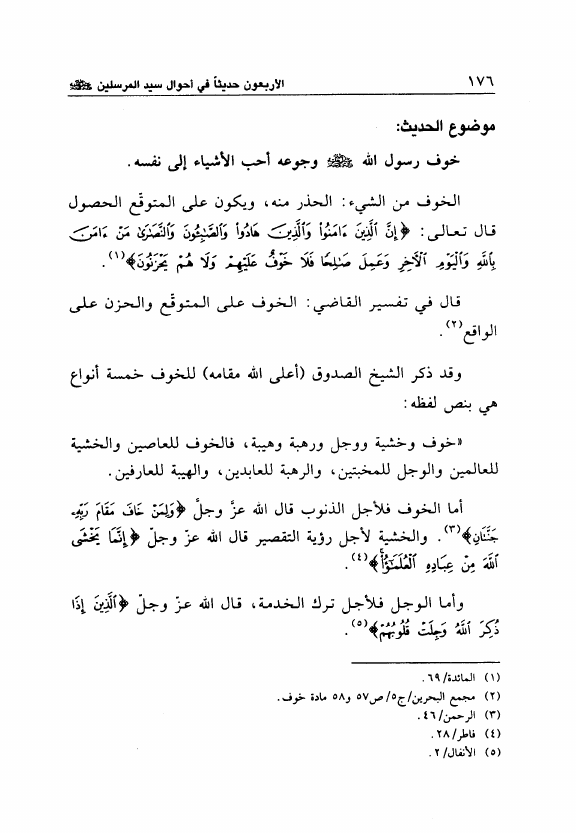 ١٧٦ الأربعون حديثاً في أحوال سيد المرسلين ﷺ
موضوع الحديث:
خوف رسول الله ﷺ وجوعه أحب الأشياء إلى نفسه.
الخوف من الشيء: الحذر منه، ويكون على المتوقع الحصول
قال تعالى: ﴿إِنَّ ٱلَّذِينَ ءَامَنُوا۟ وَٱلَّذِينَ هَادُوا۟ وَٱلصَّٰبِـُٔونَ وَٱلنَّصَٰرَىٰ مَنْ ءَامَنَ
بِٱللَّهِ وَٱلْيَوْمِ ٱلْءَاخِرِ وَعَمِلَ صَٰلِحًا فَلَا خَوْفٌ عَلَيْهِمْ وَلَا هُمْ يَحْزَنُونَ﴾(١).
قال في تفسير القاضي: الخوف على المتوقع والحزن على
الواقع(٢).
وقد ذكر الشيخ الصدوق (أعلى الله مقامه) للخوف خمسة أنواع
هي بنص لفظه:
«خوف وخشية ووجل ورهبة وهيبة، فالخوف للعاصين والخشية
للعالمين والوجل للمخبتين، والرهبة للعابدين، والهيبة للعارفين.
أما الخوف فلأجل الذنوب قال الله عزَّ وجلَّ ﴿وَلِمَنْ خَافَ مَقَامَ رَبِّهِۦ
جَنَّتَانِ﴾(٣). والخشية لأجل رؤية التقصير قال الله عزّ وجلّ ﴿إِنَّمَا يَخْشَى
ٱللَّهَ مِنْ عِبَادِهِ ٱلْعُلَمَٰٓؤُا۟﴾(٤).
وأما الوجل فلأجل ترك الخدمة، قال الله عزّ وجلّ ﴿ٱلَّذِينَ إِذَا
ذُكِرَ ٱللَّهُ وَجِلَتْ قُلُوبُهُمْ﴾(٥).
(١) المائدة/٦٩.
(٢) مجمع البحرين/ج٥/ص٥٧ و٥٨ مادة خوف.
(٣) الرحمن/٤٦.
(٤) فاطر/٢٨.
(٥) الأنفال/٢.